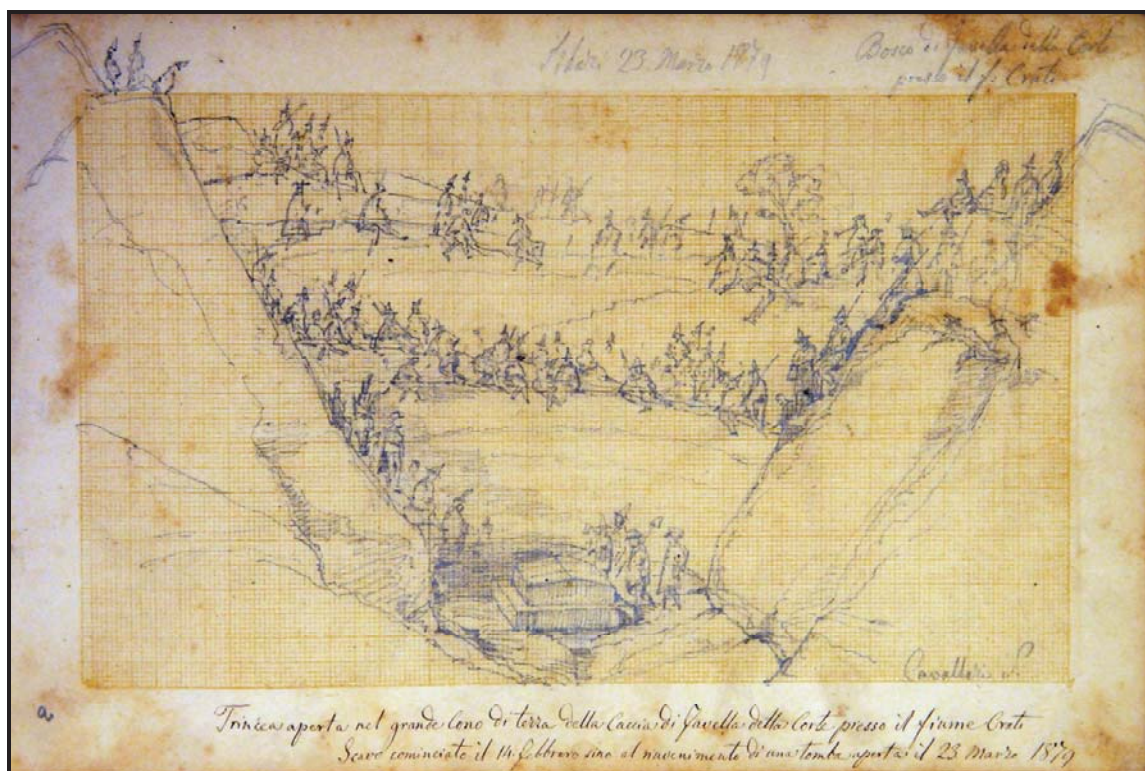 Sibari 23. Marzo 1879
Bosco di Favella della Corte
presso il f. Crati
Cavallari S.
a
Trincea aperta nel grande Cono di terra della Caccia di Favella della Corte presso il fiume Crati
Scavo cominciato il 14. febbraro sino al rinvenimento di una tomba aperta il 23 Marzo 1879